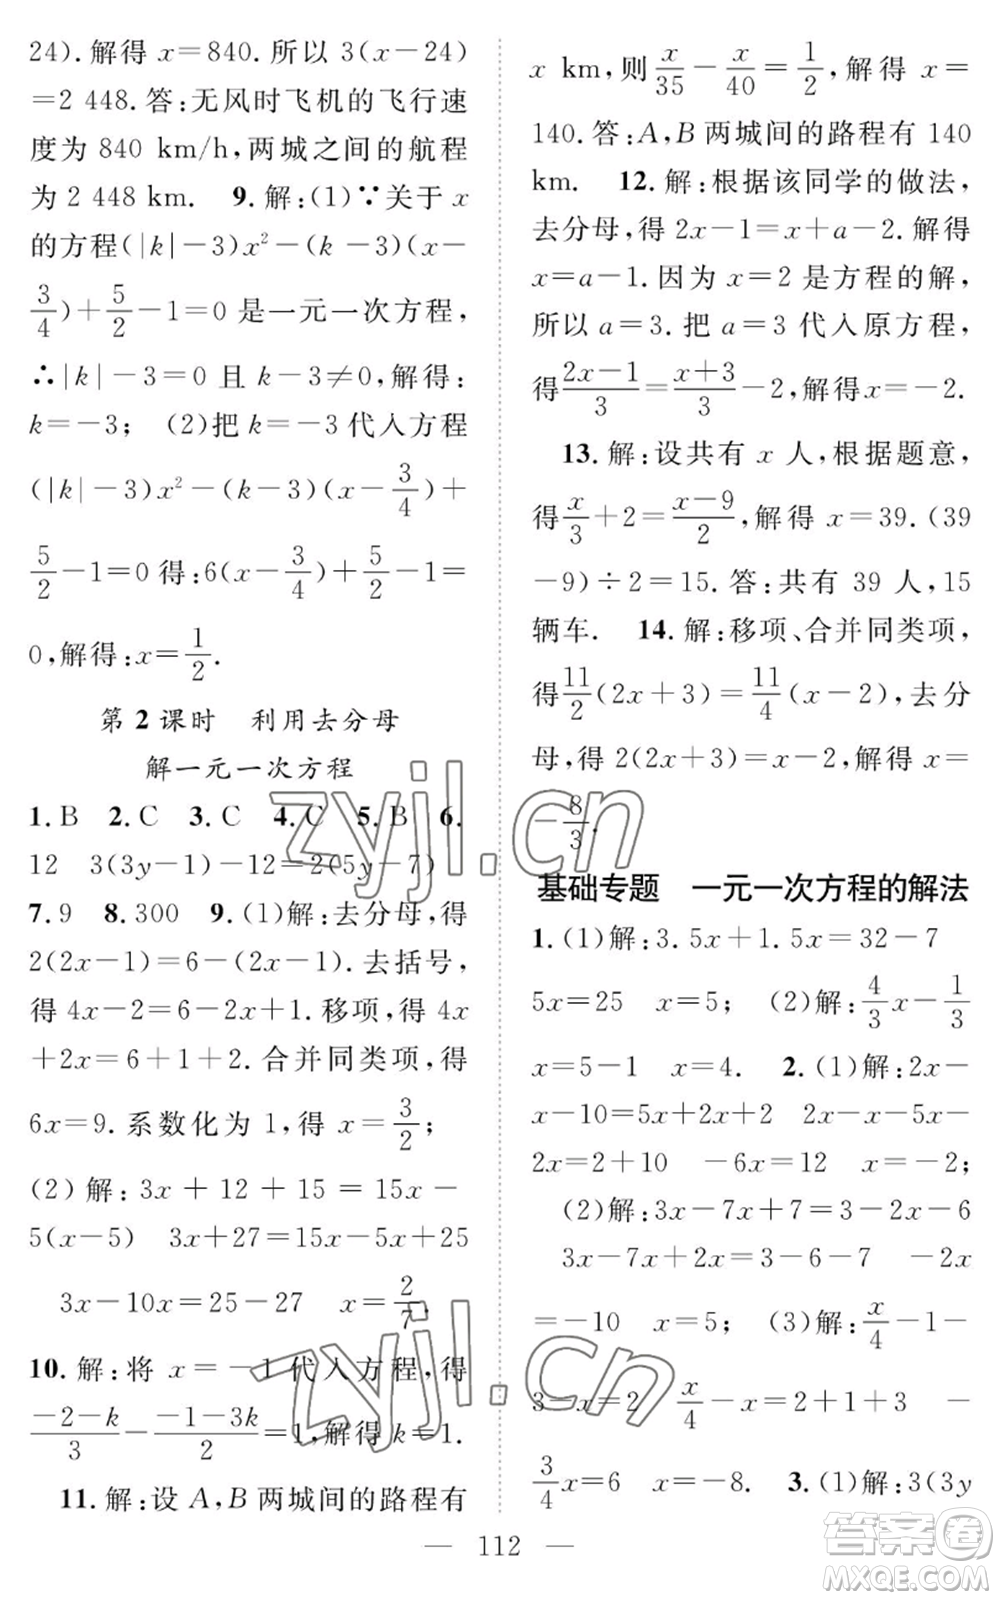 24).解得 x=840.所以 3(x-24)
=2 448.答:无风时飞机的飞行速
度为 840 km/h,两城之间的航程
为 2 448 km. 9.解:(1)∵关于 x
的方程(|k|-3)x²-(k-3)(x-
3/4)+5/2-1=0 是一元一次方程,
∴|k|-3=0 且 k-3≠0,解得:
k=-3; (2)把 k=-3 代入方程
(|k|-3)x²-(k-3)(x-3/4)+
5/2-1=0 得:6(x-3/4)+5/2-1=
0,解得:x=1/2.
第 2 课时 利用去分母
解一元一次方程
1.B 2.C 3.C 4.C 5.B 6.
12 3(3y-1)-12=2(5y-7)
7.9 8.300 9.(1)解:去分母,得
2(2x-1)=6-(2x-1).去括号,
得 4x-2=6-2x+1.移项,得 4x
+2x=6+1+2.合并同类项,得
6x=9.系数化为 1,得 x=3/2;
(2)解:3x+12+15=15x-
5(x-5) 3x+27=15x-5x+25
3x-10x=25-27 x=2/7.
10.解:将 x=-1 代入方程,得
(-2-k)/3-(-1-3k)/2=1,解得 k=1.
11.解:设 A,B 两城间的路程有
x km,则x/35-x/40=1/2,解得 x=
140.答:A,B 两城间的路程有 140
km. 12.解:根据该同学的做法,
去分母,得 2x-1=x+a-2.解得
x=a-1.因为 x=2 是方程的解,
所以 a=3.把 a=3 代入原方程,
得(2x-1)/3=(x+3)/3-2,解得x=-2.
13.解:设共有 x 人,根据题意,
得x/3+2=(x-9)/2,解得 x=39.(39
-9)÷2=15.答:共有 39 人,15
辆车. 14.解:移项、合并同类项,
得11/2(2x+3)=11/4(x-2),去分
母,得 2(2x+3)=x-2,解得 x=
-8/3.
基础专题 一元一次方程的解法
1.(1)解:3.5x+1.5x=32-7
5x=25 x=5; (2)解:4/3x-1/3
x=5-1 x=4. 2.(1)解:2x-
x-10=5x+2x+2 2x-x-5x-
2x=2+10 -6x=12 x=-2;
(2)解:3x-7x+7=3-2x-6
3x-7x+2x=3-6-7 -2x
=-10 x=5; (3)解:x/4-1-
3-x=2 x/4-x=2+1+3 -
3/4x=6 x=-8. 3.(1)解:3(3y
112
zyjl.cn
zyjl.cn
答案圈
MXQE.COM